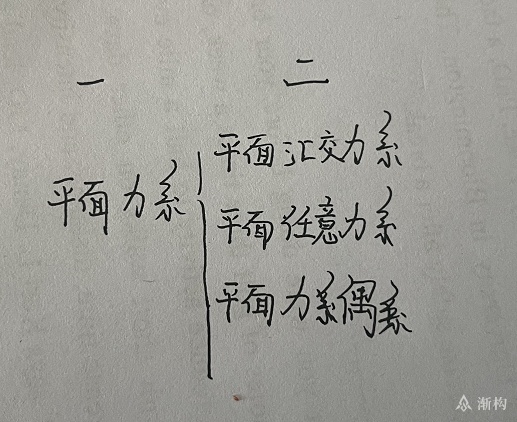 一 二
平面汇交力系
平面力系
平面任意力系
平面力系偶系
渐构